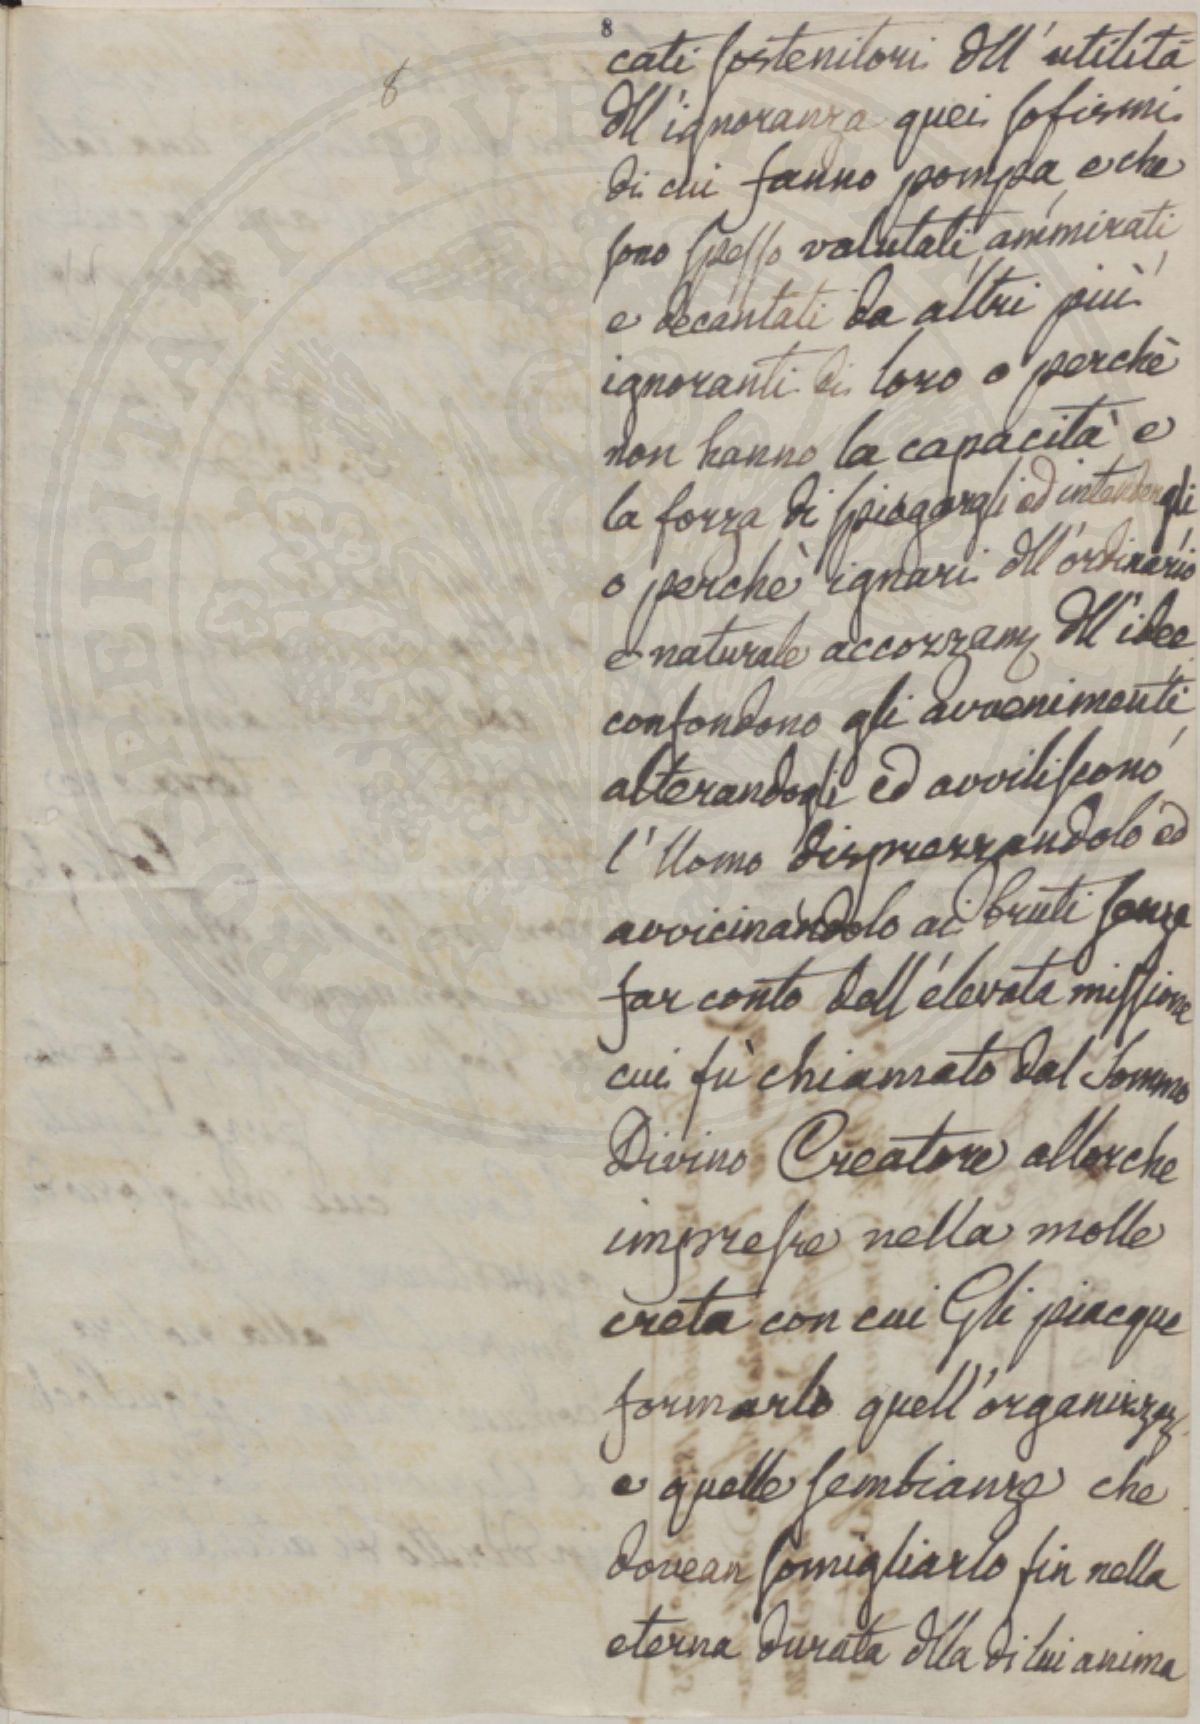 8
8
cati sostenitori dll'utilità
dll'ignoranza quei sofismi
di cui fanno pompa, e che
sono spesso valutati, ammirati,
e decantati da altri più
ignoranti di loro o perchè
non hanno la capacità e
la forza di spiegargli ed intendergli
o perchè ignari dll'ordinario
e naturale accozzam dll'idee
confondono gli avvenimenti,
alterandogli ed avviliscono
l'Uomo disprezzandolo ed
avvicinandolo ai bruti senza
far conto dell'elevata missione
cui fù chiamato dal Sommo
Divino Creatore allorche
impresse nella molle
creta con cui Gli piacque
formarlo quell'organizzaz
e quelle sembianze che
dovean somigliarlo fin nella
eterna durata dlla di lui anima
PROSPERITATI PVBLICAE